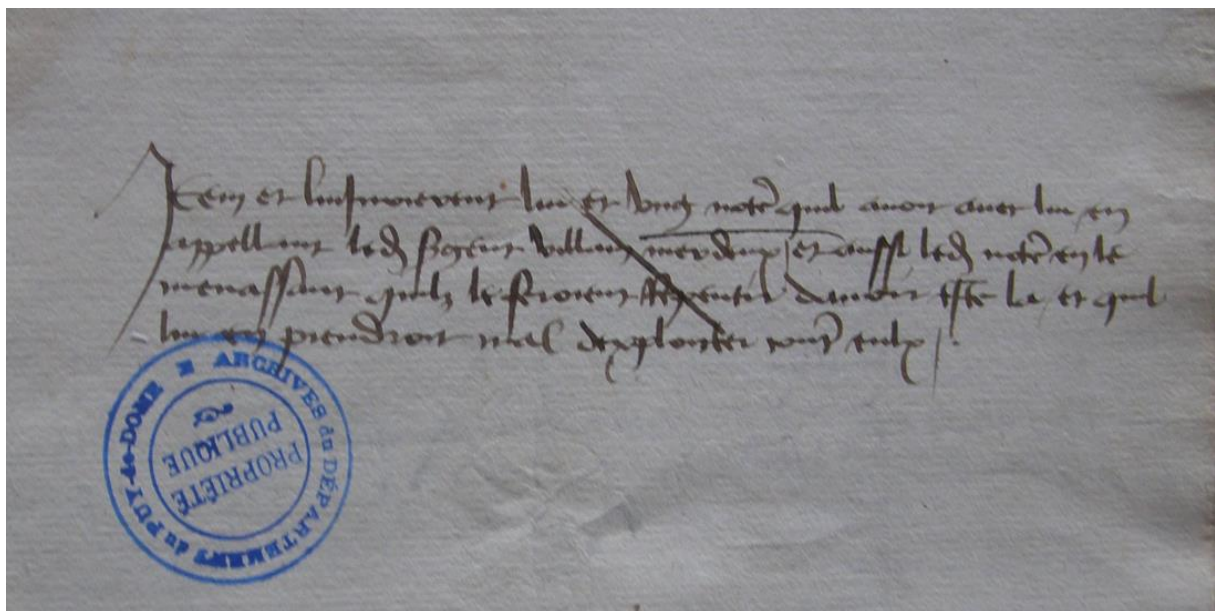 Item et luy injurierent lui et ung notẽ quil avoit avec lui en
appellant led sergent villain merdeux et aussi led notẽ en le
menassant quilz le feroient repentir davoir esté la et quil
lui en prendroit mal dexploicter contr̃ eulx
ARCHIVES du DÉPARTEMENT du PUY-de-DOME
PROPRIÉTÉ
PUBLIQUE